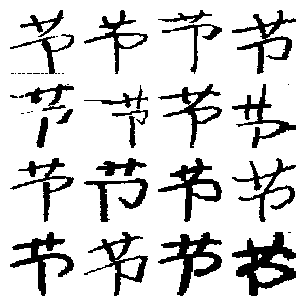 节节节节
节节节节
节节节节
节节节节